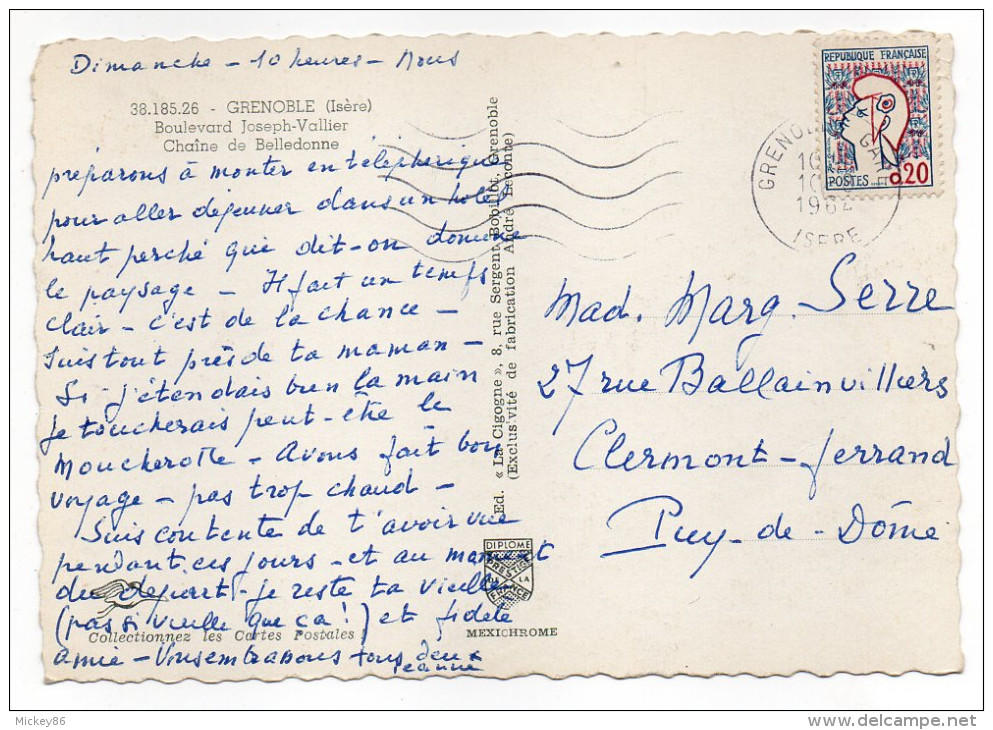 Dimanche - 10 heures - Nous
38.185.26 - GRENOBLE (Isère)
Boulevard Joseph-Vallier
Chaîne de Belledonne
préparons à monter en téléphérique
pour aller déjeuner dans un hôtel
haut perché qui dit-on domine
le paysage - Il fait un temps
clair - c'est de la chance -
Suis tout près de ta maman -
Si j'étendais bien la main
je toucherais peut-être le
Moucherotte - Avons fait bon
voyage - pas trop chaud -
Suis contente de t'avoir vue
pendant ces jours - et au moment
du départ - je reste ta vieille
(pas si vieille que ça!) et fidèle
amie - Vous embrassons tous deux
Jeanne
Collectionnez les Cartes Postales
Ed. « La Cigogne », 8, rue Sergent Bobillot, Grenoble
(Exclusivité de fabrication André Leconte)
DIPLOME
PRESTIGE
DE LA
FRANCE
MEXICHROME
REPUBLIQUE FRANÇAISE
POSTES
0.20
GRENOBLE GARE
1962
ISERE
Mad. Marg. Serre
27 rue Ballainvilliers
Clermont-ferrand
Puy-de-Dôme
Mickey86
delcampe.net